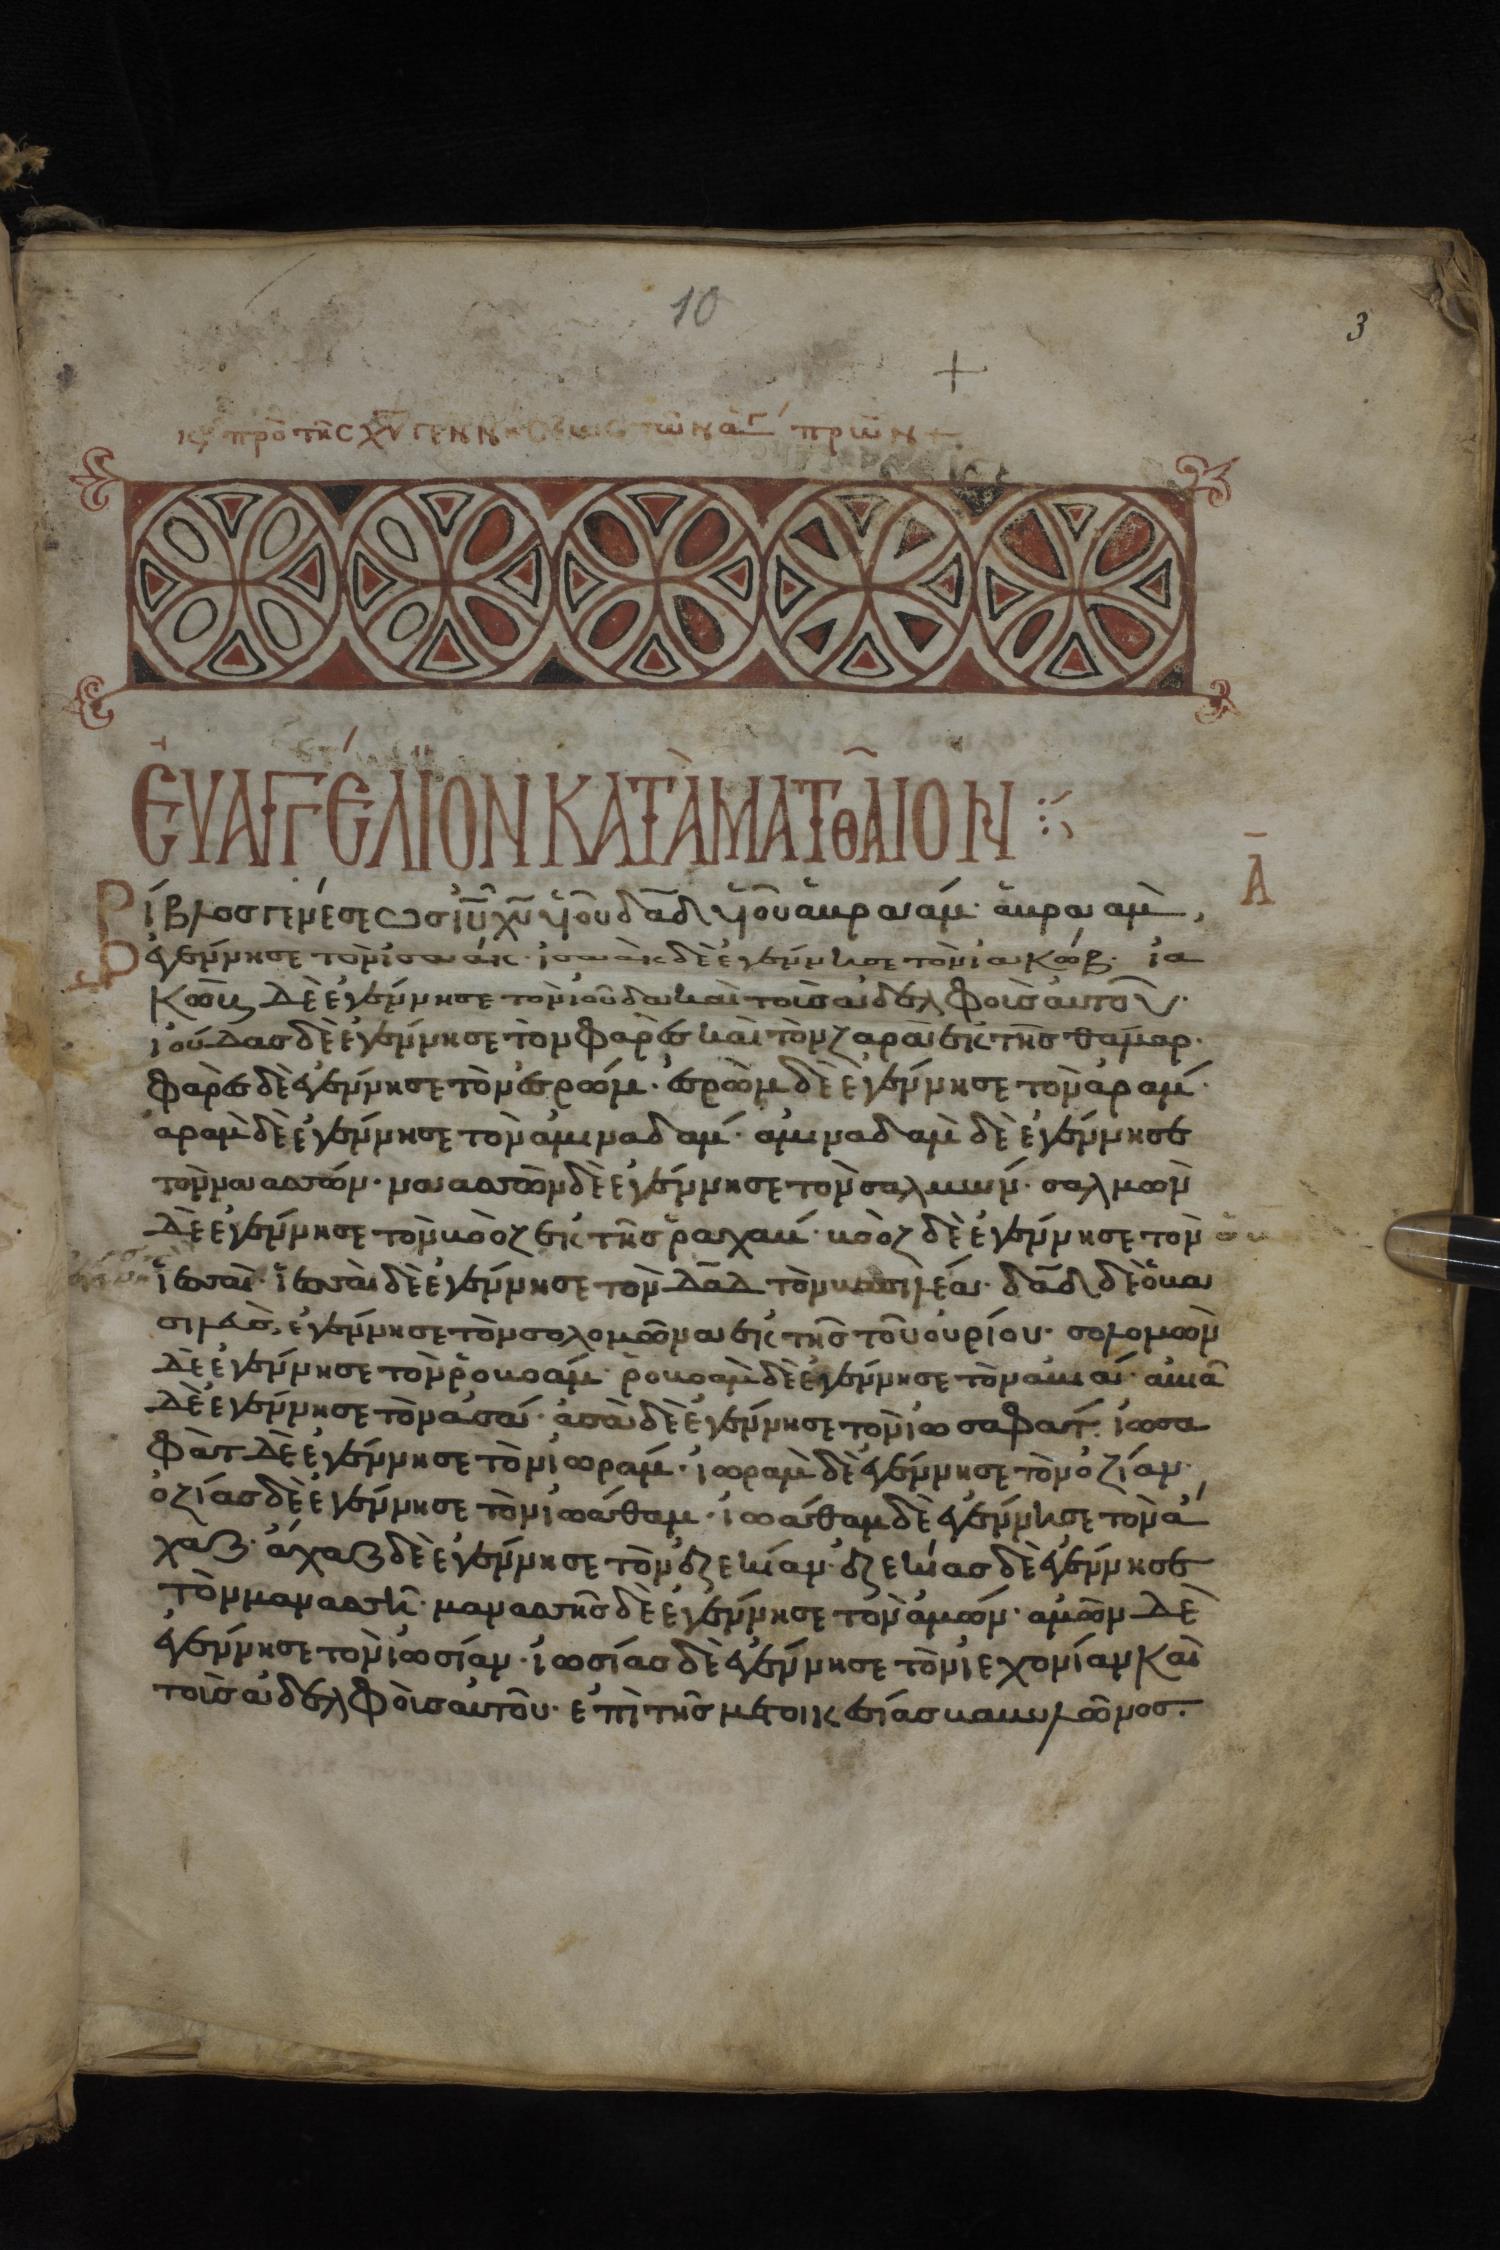 10
3
+
κυ πρὸ τῆς χυ γεννήσεως τῶν ἁγ πρων +
ΕΥΑΓΓΕΛΙΟΝ ΚΑΤᾺ ΜΑΤΘΑΙΟΝ
Α
Βίβλος γενέσεως ιυ χυ υἱοῦ δαδ υἱοῦ ἀβραάμ· ἀβραὰμ
ἐγέννησε τὸν ἰσαάκ· ἰσαὰκ δὲ ἐγέννησε τὸν ἰακώβ· ἰα
κὼβ δὲ ἐγέννησε τὸν ἰούδα καὶ τοὶς ἀδελφοὶς αὐτοῦ·
ἰούδας δὲ ἐγέννησε τὸν φαρὲς καὶ τὸν ζαρὰ ἐκ τῆς θάμαρ·
φαρὲς δὲ ἐγέννησε τὸν ἐσρώμ· ἐσρὼμ δὲ ἐγέννησε τὸν ἀράμ·
ἀρὰμ δὲ ἐγέννησε τὸν ἀμιναδάμ· ἀμιναδὰμ δὲ ἐγέννησε
τὸν ναασσών· ναασσὼν δὲ ἐγέννησε τὸν σαλμών· σαλμὼν
δὲ ἐγέννησε τὸν βοὸζ ἐκ τῆς ῥαχάβ· βοὸζ δὲ ἐγέννησε τὸν
ἰεσσαί· ἰεσσαὶ δὲ ἐγέννησε τὸν δαδ τὸν βασιλέα· δαδ δὲ ὁ βα
σιλεὺς ἐγέννησε τὸν σολομῶνα ἐκ τῆς τοῦ οὐρίου· σολομὼν
δὲ ἐγέννησε τὸν ῥοβοάμ· ῥοβοὰμ δὲ ἐγέννησε τὸν ἀβιά· ἀβιὰ
δὲ ἐγέννησε τὸν ἀσά· ἀσὰ δὲ ἐγέννησε τὸν ἰωσαφάτ· ἰωσα
φὰτ δὲ ἐγέννησε τὸν ἰωράμ· ἰωρὰμ δὲ ἐγέννησε τὸν ὀζίαν·
ὀζίας δὲ ἐγέννησε τὸν ἰωάθαμ· ἰωάθαμ δὲ ἐγέννησε τὸν ἄ
χαζ· ἄχαζ δὲ ἐγέννησε τὸν ἐζεκίαν· ἐζεκίας δὲ ἐγέννησε
τὸν μανασσῆ· μανασσῆς δὲ ἐγέννησε τὸν ἀμών· ἀμὼν δὲ
ἐγέννησε τὸν ἰωσίαν· ἰωσίας δὲ ἐγέννησε τὸν ἰεχονίαν καὶ
τοὶς ἀδελφοὶς αὐτοῦ· ἐπὶ τῆς μετοικεσίας βαβυλῶνος·